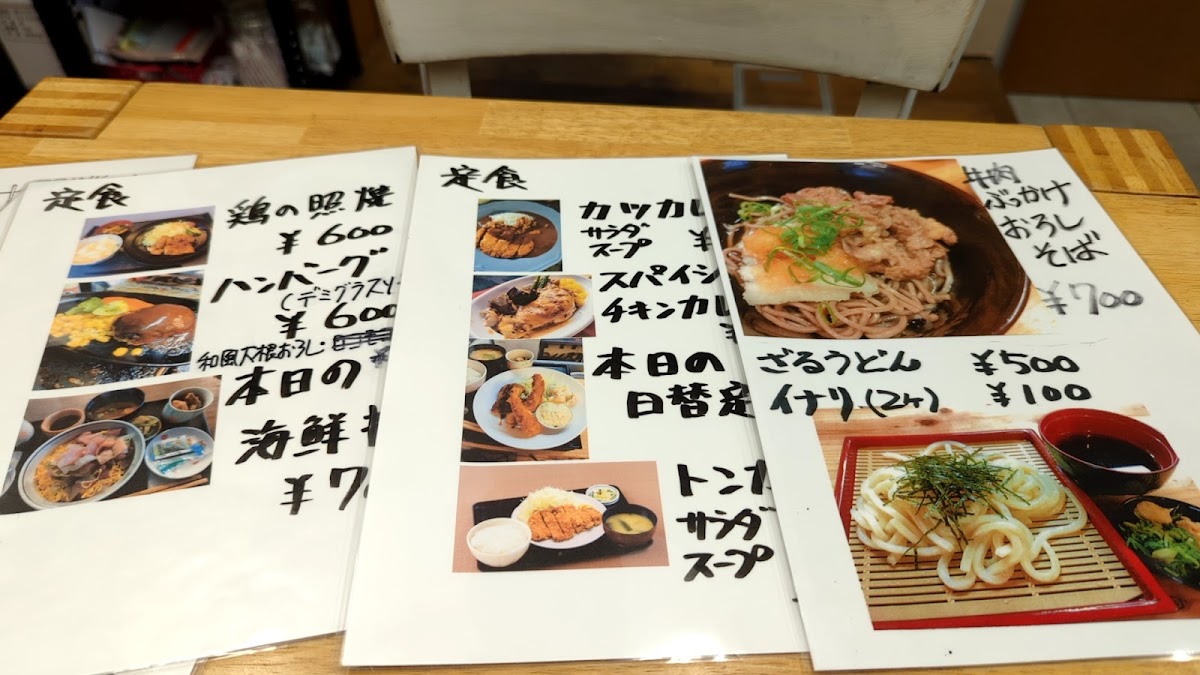 定食
鶏の照焼
¥600
ハンバーグ
(デミグラスソー
¥600
和風大根おろし
本日の
海鮮丼
¥7
定食
カツカレ
サラダ
スープ
¥
スパイシ
チキンカレ
本日の
日替定
トンカ
サラダ
スープ
牛肉
ぶっかけ
おろし
そば
¥700
ざるうどん ¥500
イナリ(2ヶ) ¥100